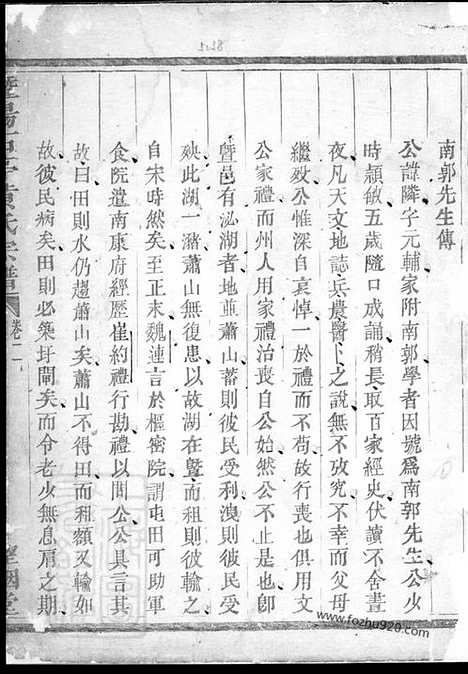 南郭先生傳
公諱隣字元輔家附南郭學者因號爲南郭先生公少
時頴敏五歲隨口成誦稍長取百家經史伏讀不舍晝
夜凡天文地誌兵農醫卜之說無不攷究不幸而父母
繼歿公惟深自哀悼一於禮而不苟故行喪也俱用文
公家禮而州人用家禮治喪自公始然公不止是也卽
曁邑有泌湖者地並蕭山蓄則彼民受利洩則彼民受
殃此湖一瀦蕭山無復患以故湖在曁而租則彼輸之
自宋時然矣至正末魏連言於樞密院謂屯田可助軍
食院遣南康府經歷崔約禮行勘禮以問公公具言其
故曰田則水仍趨蕭山矣蕭山不得田而租額又輸如
故彼民病矣田則必築圩閘矣而令老少無息肩之期
氏宗譜
卷二
堂
5228
www.fozhu920.com